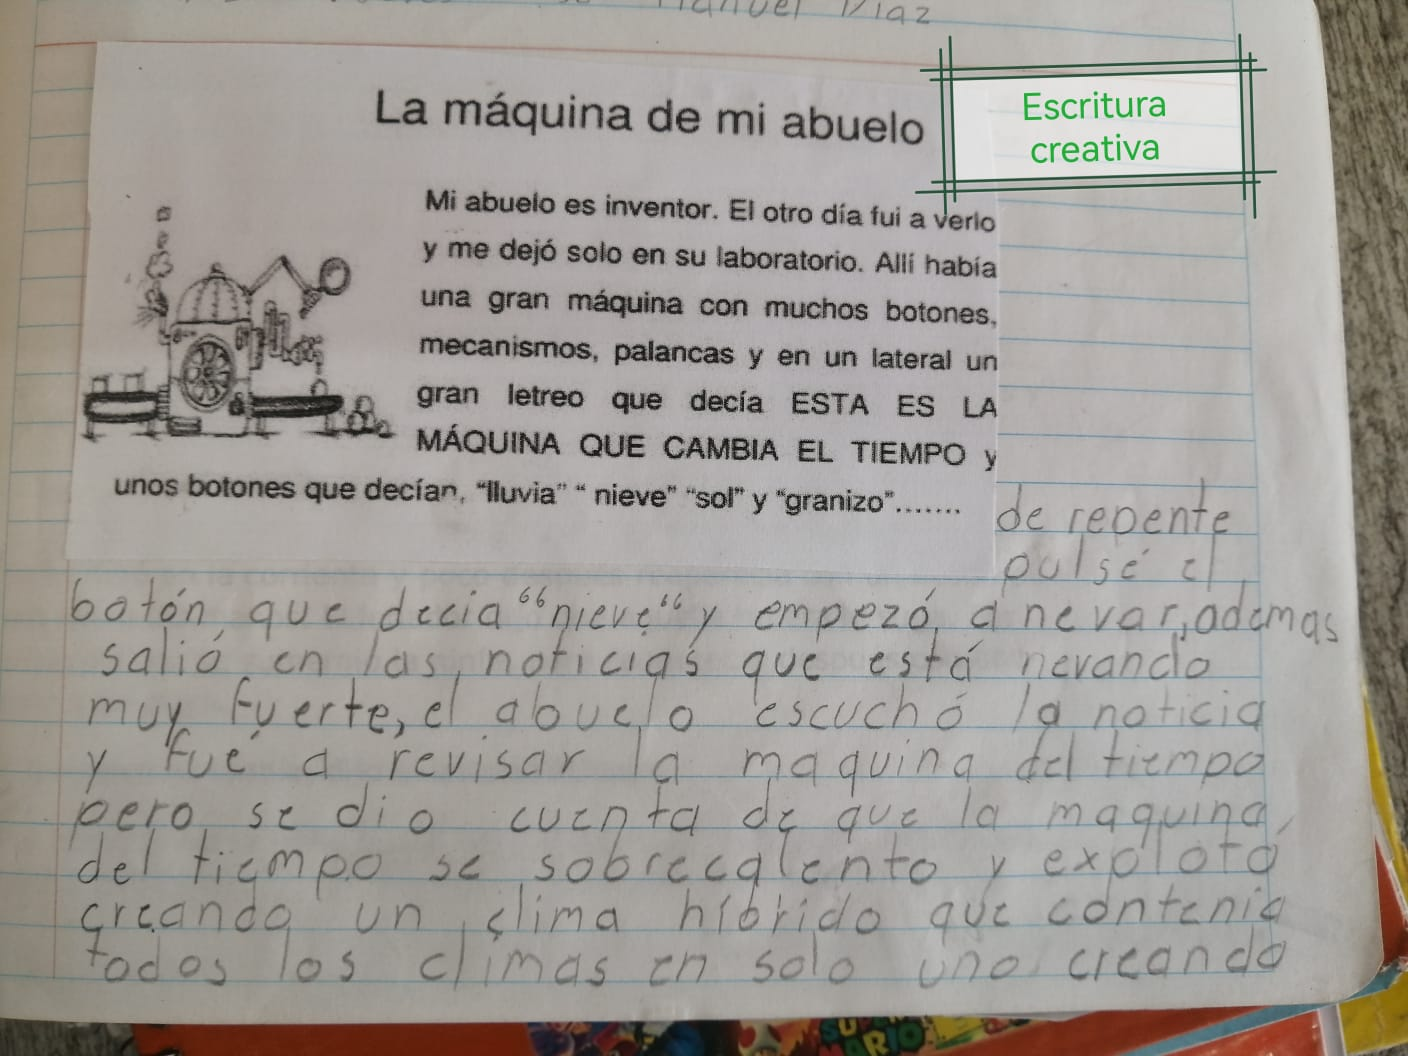 Manuel Diaz
Escritura
creativa
La máquina de mi abuelo
Mi abuelo es inventor. El otro día fui a verlo
y me dejó solo en su laboratorio. Allí había
una gran máquina con muchos botones,
mecanismos, palancas y en un lateral un
gran letreo que decía ESTA ES LA
MÁQUINA QUE CAMBIA EL TIEMPO y
unos botones que decían, “lluvia” “ nieve” “sol” y “granizo”.......
de repente
pulsé el
botón que decia “nieve“ y empezó a nevar, ademas
salió en las noticias que está nevando
muy fuerte, el abuelo escuchó la noticia
y fué a revisar la maquina del tiempo
pero se dio cuenta de que la maquina
del tiempo se sobrecalento y explotó
creando un clima híbrido que contenia
todos los climas en solo uno creando
SUPER
MARIO